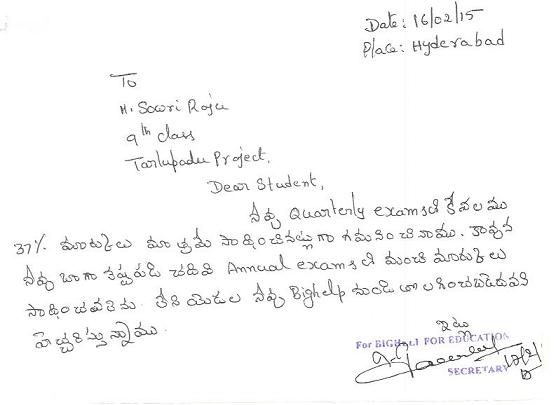 Date: 16/02/15
Place: Hyderabad
To
M. Sowri Raju
9th class
Tarlupadu Project.
Dear Student,
నీవు Quarterly examsలో కేవలము
37% మార్కులు మాత్రమే సాధించినట్లుగా గమనించినాము. కావున
నీవు బాగా కష్టపడి చదివి Annual examsలో మంచి మార్కులు
సాధించవలెను. లేని యెడల నీవు Bighelp నుండి తొలగించబడెదవని
హెచ్చరిస్తున్నాము.
ఇట్లు
For BIGHELP FOR EDUCATION
SECRETARY